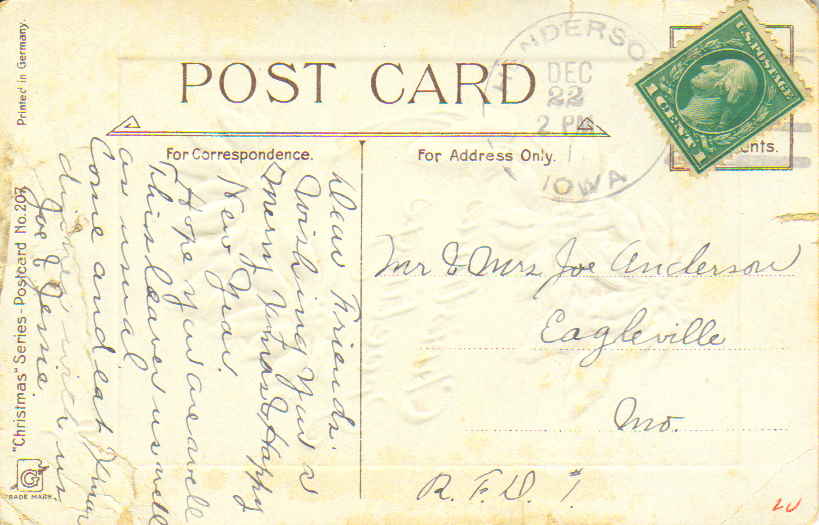 Printed in Germany.
"Christmas" Series - Postcard No. 207
TRADE MARK
POST CARD
For Correspondence.
For Address Only.
HENDERSO
DEC
22
2 PM
IOWA
U.S. POSTAGE
1 CENT 1
ents.
Dear Friends.
Wishing you a
Merry Xmas & Happy
New Year.
Hope you are well
This leaves us well
as usual.
Come and eat Xmas
dinner with us
Joe & Jessie.
Mr & Mrs Joe Anderson
Eagleville
Mo.
R.F.D. #1.